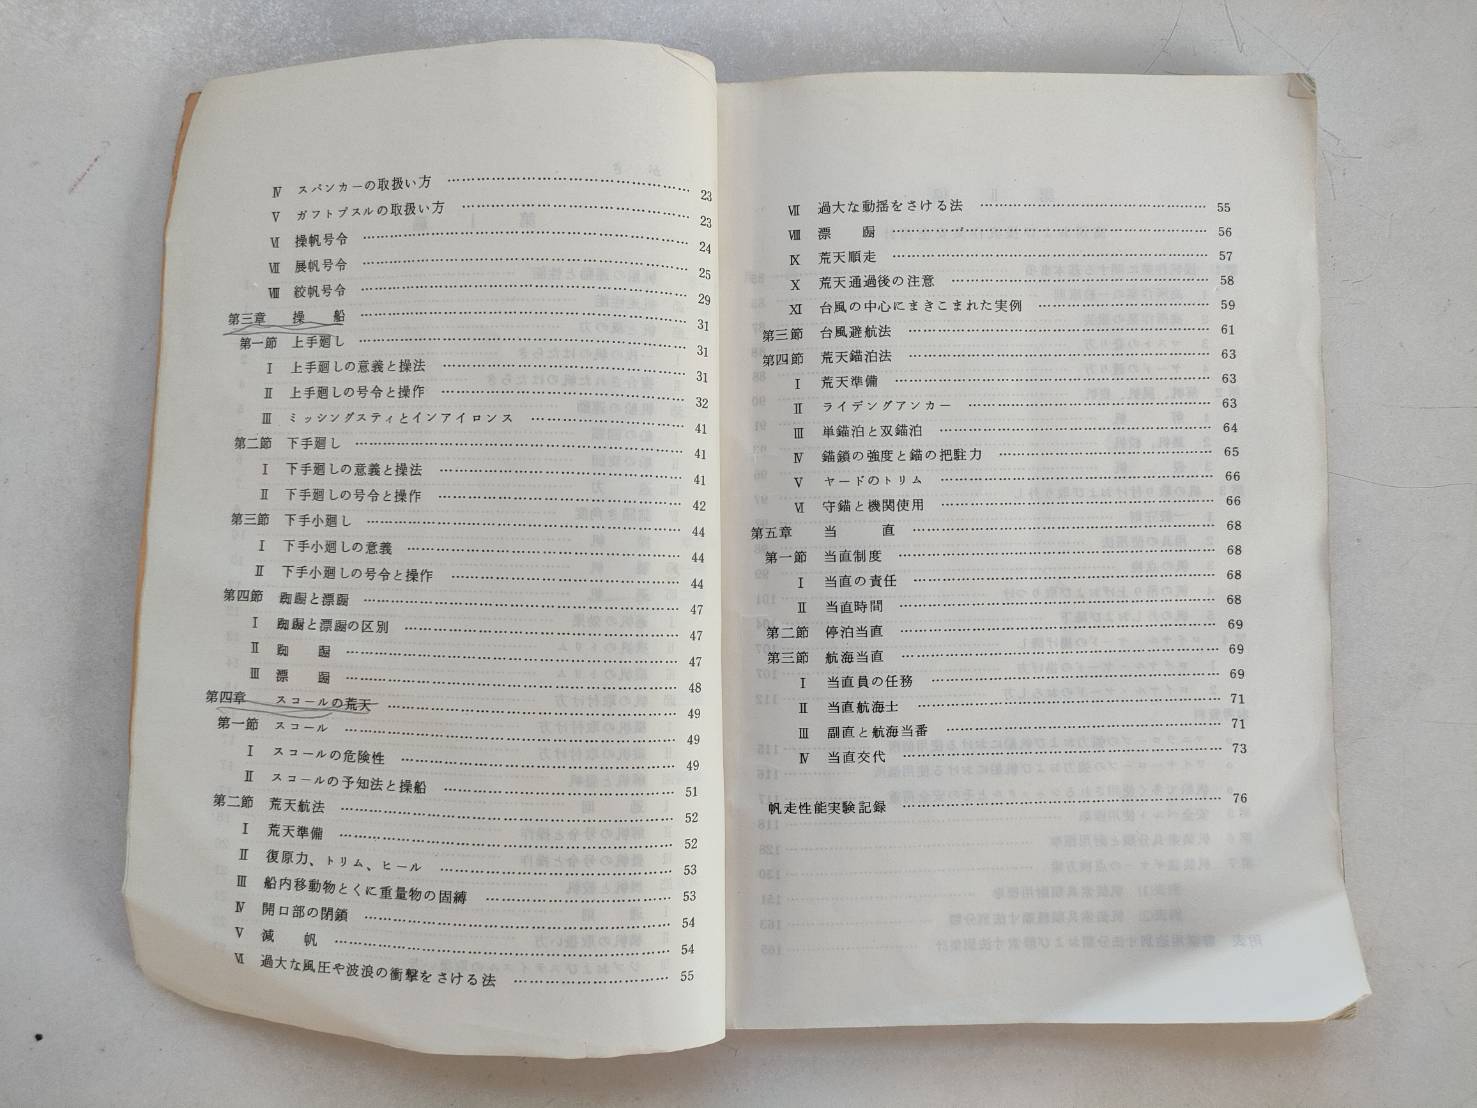 Ⅳ スパンカーの取扱い方 23
Ⅴ ガフトプスルの取扱い方 23
Ⅵ 操帆号令 24
Ⅶ 展帆号令 25
Ⅷ 絞帆号令 29
第三章 操船 31
第一節 上手廻し 31
Ⅰ 上手廻しの意義と操法 31
Ⅱ 上手廻しの号令と操作 32
Ⅲ ミッシングスティとインアイロンス 41
第二節 下手廻し 41
Ⅰ 下手廻しの意義と操法 41
Ⅱ 下手廻しの号令と操作 42
第三節 下手小廻し 44
Ⅰ 下手小廻しの意義 44
Ⅱ 下手小廻しの号令と操作 44
第四節 踟蹰と漂蹰 47
Ⅰ 踟蹰と漂蹰の区別 47
Ⅱ 踟蹰 47
Ⅲ 漂蹰 48
第四章 スコールの荒天 49
第一節 スコール 49
Ⅰ スコールの危険性 49
Ⅱ スコールの予知法と操船 51
第二節 荒天航法 52
Ⅰ 荒天準備 52
Ⅱ 復原力、トリム、ヒール 53
Ⅲ 船内移動物とくに重量物の固縛 53
Ⅳ 開口部の閉鎖 54
Ⅴ 減帆 54
Ⅵ 過大な風圧や波浪の衝撃をさける法 55
Ⅶ 過大な動揺をさける法 55
Ⅷ 漂蹰 56
Ⅸ 荒天順走 57
Ⅹ 荒天通過後の注意 58
Ⅺ 台風の中心にまきこまれた実例 59
第三節 台風避航法 61
第四節 荒天錨泊法 63
Ⅰ 荒天準備 63
Ⅱ ライデングアンカー 63
Ⅲ 単錨泊と双錨泊 64
Ⅳ 錨鎖の強度と錨の把駐力 65
Ⅴ ヤードのトリム 66
Ⅵ 守錨と機関使用 66
第五章 当直 68
第一節 当直制度 68
Ⅰ 当直の責任 68
Ⅱ 当直時間 68
第二節 停泊当直 69
第三節 航海当直 69
Ⅰ 当直員の任務 69
Ⅱ 当直航海士 71
Ⅲ 副直と航海当番 71
Ⅳ 当直交代 73
帆走性能実験記録 76